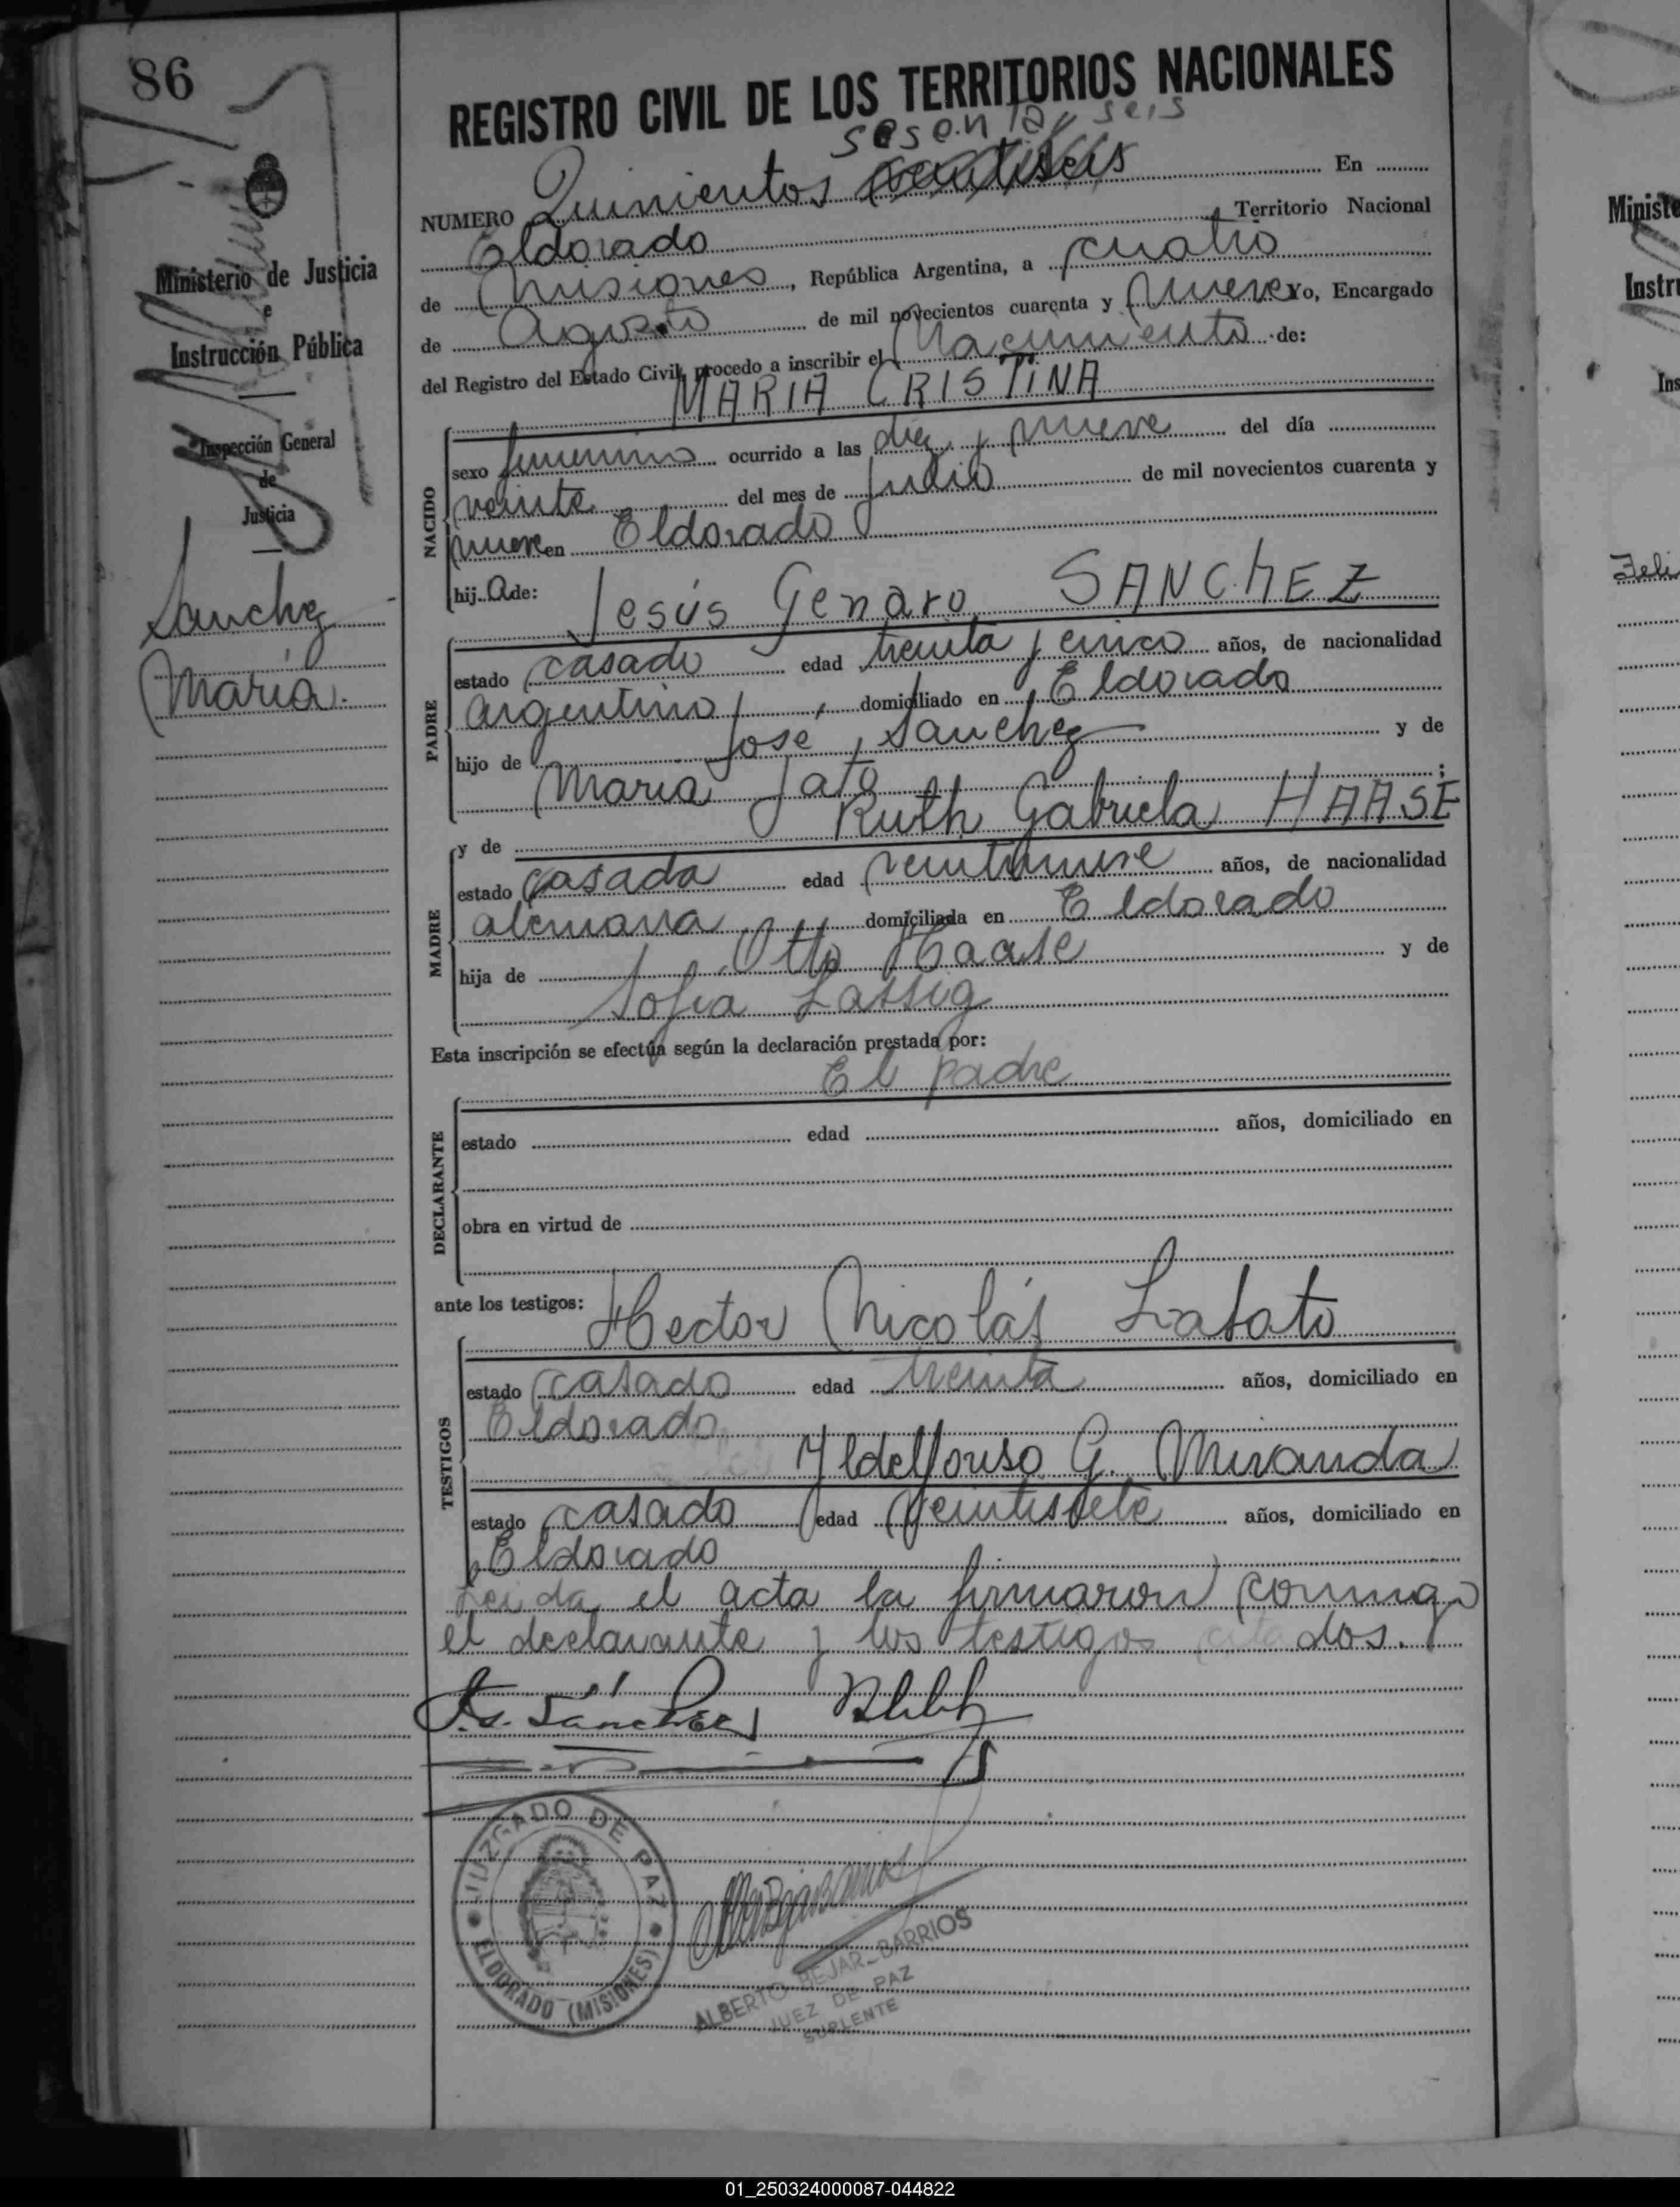 86
REGISTRO CIVIL DE LOS TERRITORIOS NACIONALES
sesenta y seis
NUMERO Quinientos veintiseis En
Eldorado Territorio Nacional
de Misiones, República Argentina, a cuatro
de Agosto de mil novecientos cuarenta y nueve Yo, Encargado
del Registro del Estado Civil, procedo a inscribir el Nacimiento de:
MARIA CRISTINA
NACIDO
sexo femenino ocurrido a las diez y nueve del día
veinte del mes de Julio de mil novecientos cuarenta y
nueve en Eldorado
hij a de:
Jesús Genaro SANCHEZ
PADRE
estado casado edad treinta y cinco años, de nacionalidad
argentino, domiciliado en Eldorado
hijo de José Sanchez y de
Maria Jato;
y de Ruth Gabriela HAASE
MADRE
estado casada edad veintinueve años, de nacionalidad
alemana domiciliada en Eldorado
hija de Otto Haase y de
Sofia Lassig
Esta inscripción se efectúa según la declaración prestada por:
El padre
DECLARANTE
estado edad años, domiciliado en
obra en virtud de
ante los testigos:
Hector Nicolás Labato
TESTIGOS
estado casado edad treinta años, domiciliado en
Eldorado
Yldelfonso G. Miranda
estado casado edad veintisiete años, domiciliado en
Eldorado
Leida el acta la firmaron conmigo
el declarante y los testigos citados.
Sánchez
JUZGADO DE PAZ
ELDORADO (MISIONES)
ALBERTO BEJAR-BARRIOS
JUEZ DE PAZ
SUPLENTE
Ministerio de Justicia
e
Instrucción Pública
Inspección General
de
Justicia
Sanchez
Maria.
Ministe
Instru
Ins
Feli
01_250324000087-044822